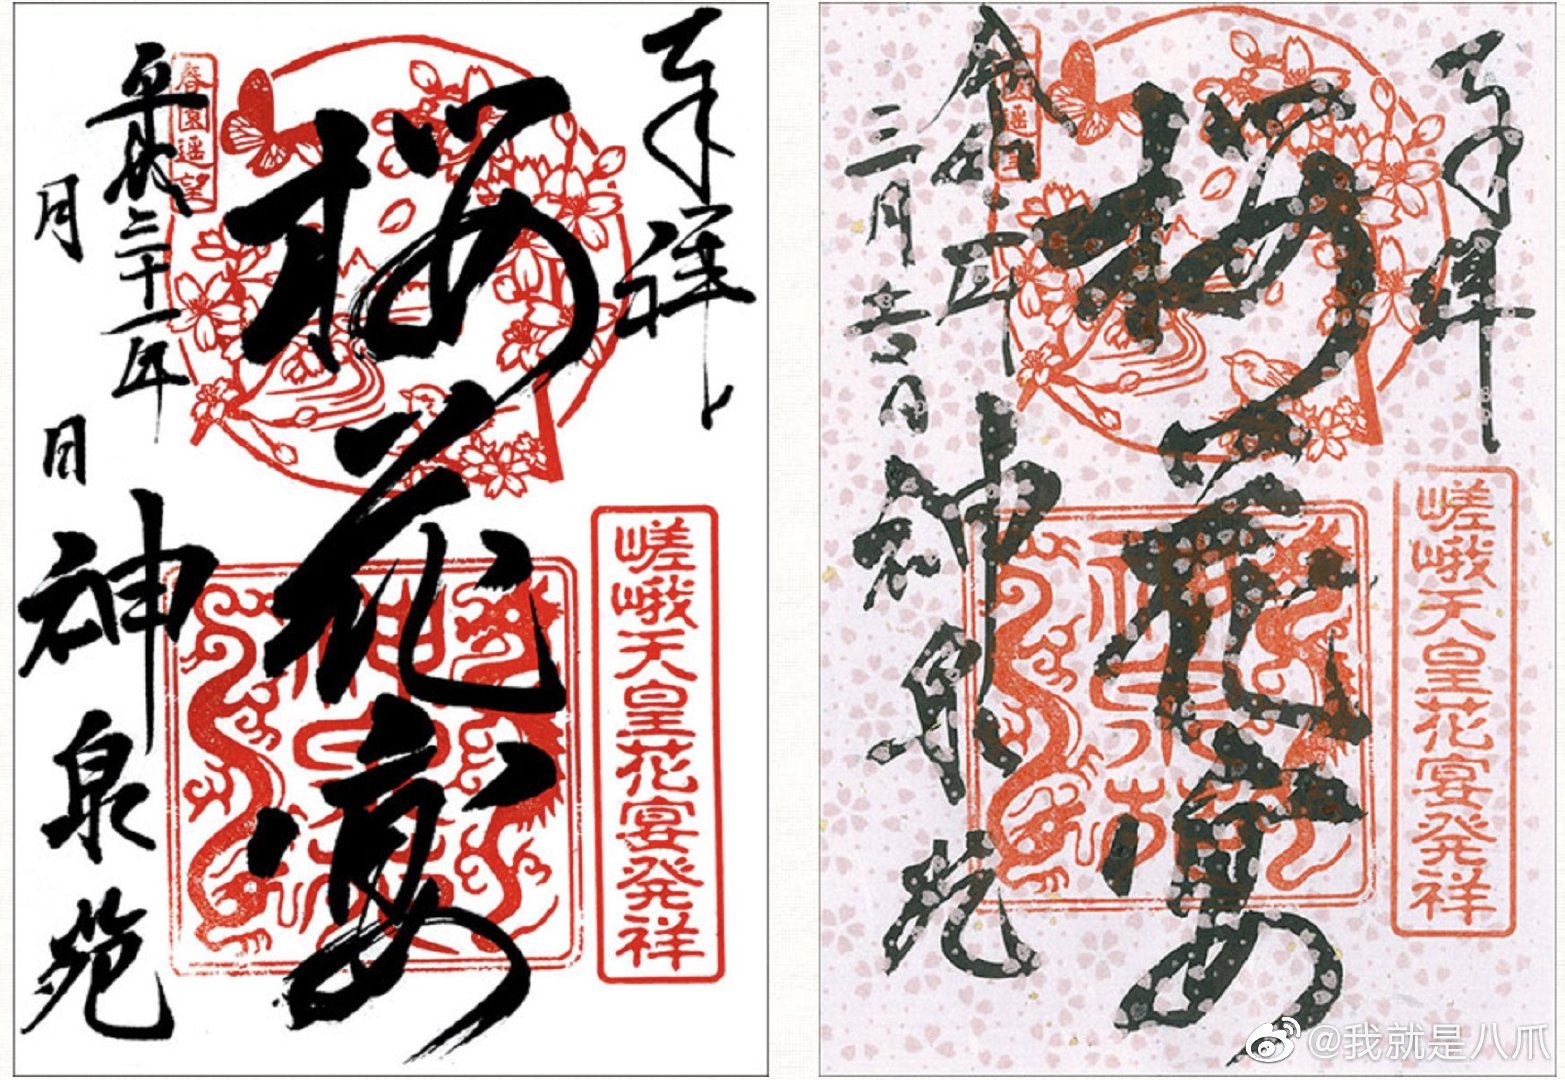 奉拝
嵯峨天皇花宴発祥
桜花宴
春園遥望
平成三十一年
月 日
神泉苑
奉拝
嵯峨天皇花宴発祥
桜花宴
令和
三月吉日
神泉苑
@我就是八爪